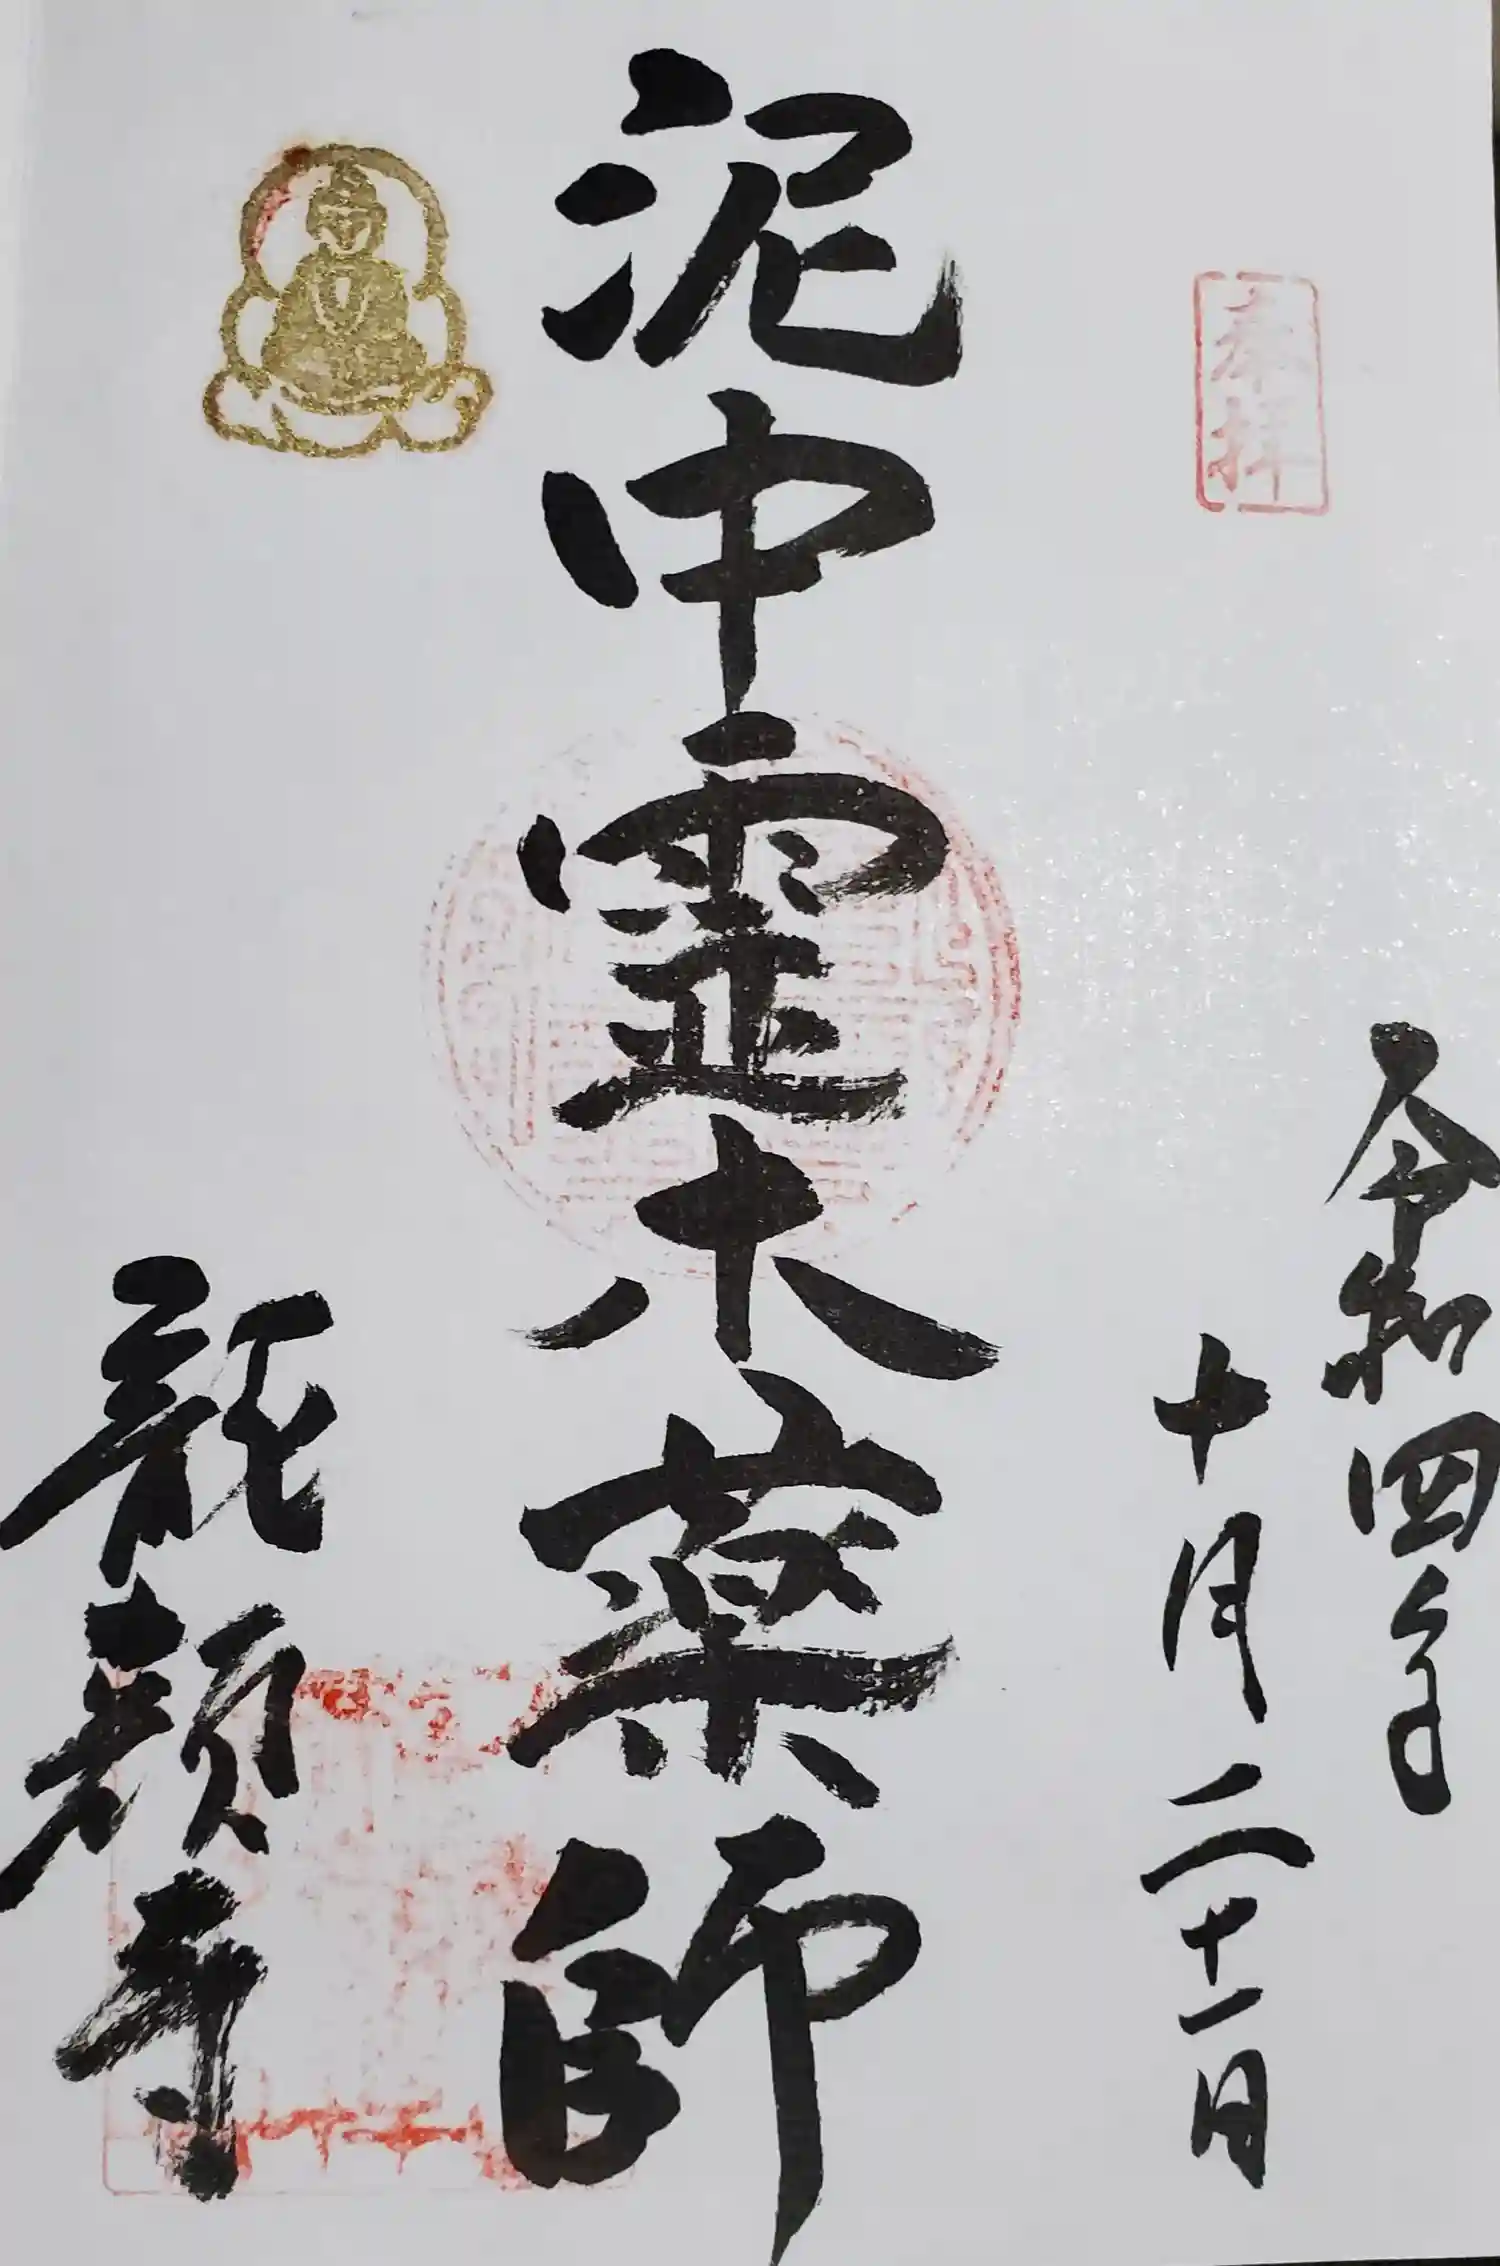 奉拝
令和四年
十月二十一日
泥中霊木薬師
龍顔寺